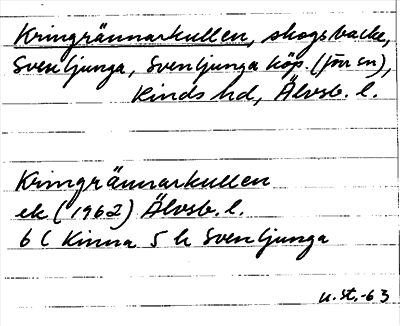 Kringrännarkullen, skogsbacke,
Svenljunga, Svenljunga köp. (jör sn),
Kinds hd, Älvsb. l.
Kringrännarkullen
ek (1962) Älvsb. l.
6 C Kinna 5 h Svenljunga
u. st. -63